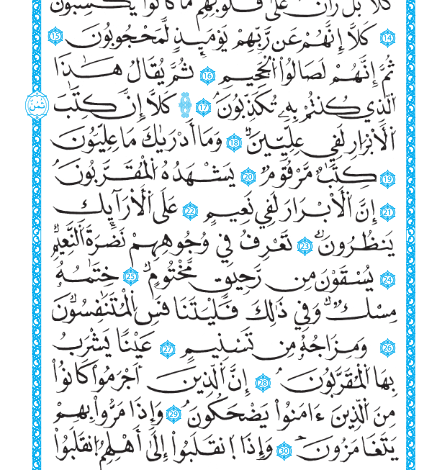 كَلَّا بَل رَّانَ عَلَىٰ قُلُوبِهِم مَّا كَانُوا۟ يَكْسِبُونَ
١٤ كَلَّآ إِنَّهُمْ عَن رَّبِّهِمْ يَوْمَئِذٍ لَّمَحْجُوبُونَ ١٥
ثُمَّ إِنَّهُمْ لَصَالُوا۟ الْجَحِيمِ ١٦ ثُمَّ يُقَالُ هَٰذَا
الَّذِي كُنتُم بِهِۦ تُكَذِّبُونَ ١٧ ۞ كَلَّآ إِنَّ كِتَٰبَ ثمن
الْأَبْرَارِ لَفِي عِلِّيِّينَ ١٨ وَمَآ أَدْرَىٰكَ مَا عِلِّيُّونَ
١٩ كِتَٰبٌ مَّرْقُومٌ ٢٠ يَشْهَدُهُ الْمُقَرَّبُونَ
٢١ إِنَّ الْأَبْرَارَ لَفِي نَعِيمٍ ٢٢ عَلَى الْأَرَآئِكِ
يَنظُرُونَ ٢٣ تَعْرِفُ فِي وُجُوهِهِمْ نَضْرَةَ النَّعِيمِ
٢٤ يُسْقَوْنَ مِن رَّحِيقٍ مَّخْتُومٍ ٢٥ خِتَٰمُهُۥ
مِسْكٌ وَفِي ذَٰلِكَ فَلْيَتَنَافَسِ الْمُتَنَٰفِسُونَ
٢٦ وَمِزَاجُهُۥ مِن تَسْنِيمٍ ٢٧ عَيْنًا يَشْرَبُ
بِهَا الْمُقَرَّبُونَ ٢٨ إِنَّ الَّذِينَ أَجْرَمُوا۟ كَانُوا۟
مِنَ الَّذِينَ ءَامَنُوا۟ يَضْحَكُونَ ٢٩ وَإِذَا مَرُّوا۟ بِهِمْ
يَتَغَامَزُونَ ٣٠ وَإِذَا انقَلَبُوا۟ إِلَىٰٓ أَهْلِهِمُ انقَلَبُوا۟